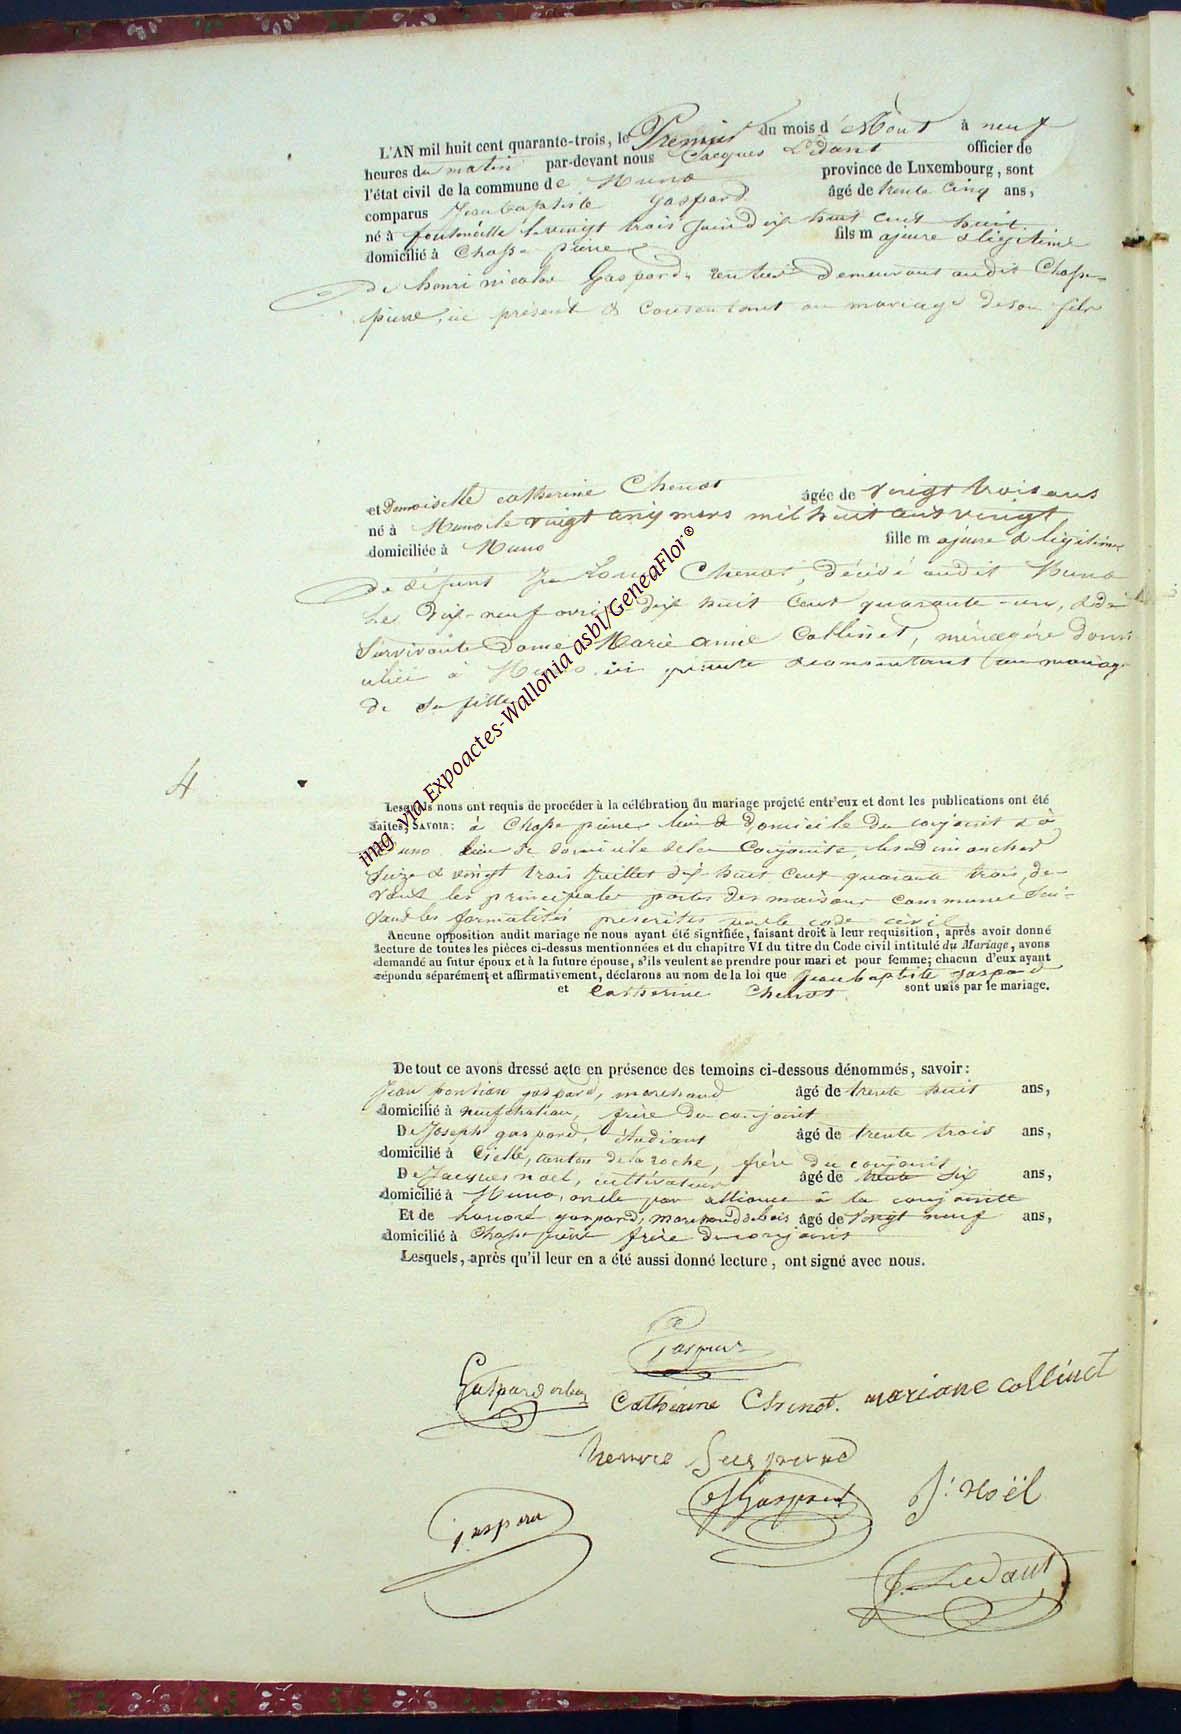 L'AN mil huit cent quarante-trois, le Premier du mois d'Août à neuf
heures du matin par-devant nous Jacques Ledant officier de
l'état civil de la commune de Muno province de Luxembourg, sont
comparus Jean baptiste gaspard âgé de trente cinq ans,
né à fontenoille le vingt trois Juin dix huit cent huit
domicilié à Chasse pierre fils majeure & légitime
De henri nicolas Gaspard, rentier Demeurant audit Chasse-
pierre, ici présent & consentant au mariage de son fils
et Demoiselle catherine Chenot âgée de vingt trois ans
né à Muno le vingt cinq mars mil huit cent vingt
domiciliée à Muno fille majeure & légitime
De défunt Chenot, décédé audit Muno
Le dix-neuf avril dix huit cent quarante-un, & de
Survivante Dame Marie anne Collinet, ménagère domi
ciliée à Muno ici présente & consentant au mariage
de sa fille
4
Lesquels nous ont requis de procéder à la célébration du mariage projeté entr'eux et dont les publications ont été
faites, SAVOIR: à Chasse pierre lieu de Domicile du conjoint & à
Muno lieu de domicile de la Conjointe, les dimanches
Seize & vingt trois Juillet dix huit cent quarante trois, de-
vant les principales portes des maisons communes Sui-
vant les formalités prescrites par le code civil
Aucune opposition audit mariage ne nous ayant été signifiée, faisant droit à leur requisition, après avoir donné
lecture de toutes les pièces ci-dessus mentionnées et du chapitre VI du titre du Code civil intitulé du Mariage, avons
demandé au futur époux et à la future épouse, s'ils veulent se prendre pour mari et pour femme; chacun d'eux ayant
répondu séparément et affirmativement, déclarons au nom de la loi que Jean baptiste gaspard
et Catherine Chenot sont unis par le mariage.
De tout ce avons dressé acte en présence des temoins ci-dessous dénommés, savoir:
Jean gaspard, marchand âgé de trente huit ans,
domicilié à neufchateau, frère du conjoint
De Joseph gaspard, étudiant âgé de trente trois ans,
domicilié à Cielle, canton de la roche, frère du conjoint
De Jacques noel, cultivateur âgé de trente six ans,
domicilié à Muno, oncle par alliance à la conjointe
Et de honoré gaspard, marchand de bois âgé de vingt neuf ans,
domicilié à Chasse pierre frère du conjoint
Lesquels, après qu'il leur en a été aussi donné lecture, ont signé avec nous.
Gaspard
Gaspard
Catherine Chenot. mariane collinet
Gaspard
J Gaspard J. Noël
gaspard
J. Ledant
img via Expoactes-Wallonia asbl/GeneaFlor®